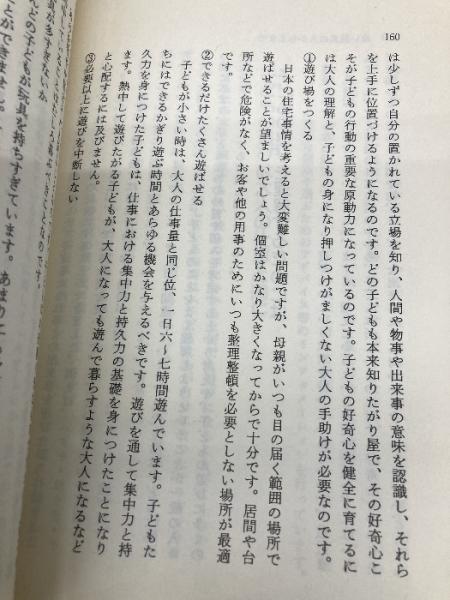 160
は少しずつ自分の置かれている立場を知り、人間や物事や出来事の意味を認識し、それら
を上手に位置づけるようになるのです。どの子どもも本来知りたがり屋で、その好奇心こ
そが子どもの行動の重要な原動力になっているのです。子どもの好奇心を健全に育てるに
は大人の理解と、子どもの身になり押しつけがましくない大人の手助けが必要なのです。
①遊び場をつくる
日本の住宅事情を考えると大変難しい問題ですが、母親がいつも目の届く範囲の場所で
遊ばせることが望ましいでしょう。個室はかなり大きくなってからで十分です。居間や台
所などで危険がなく、お客や他の用事のためにいつも整理整頓を必要としない場所が最適
です。
②できるだけたくさん遊ばせる
子どもが小さい時は、大人の仕事量と同じ位、一日六〜七時間遊んでいます。子どもた
ちにはできるかぎり遊ぶ時間とあらゆる機会を与えるべきです。遊びを通して集中力と持
久力を身につけた子どもは、仕事における集中力と持久力の基礎を身につけたことになり
ます。熱中して遊びたがる子どもが、大人になっても遊んで暮らすような大人になるなど
と心配するには及びません。
③必要以上に遊びを中断しない
なのです。
具が多すぎないか
どの子どもが玩具を持ちすぎています。あまりに
とができません。